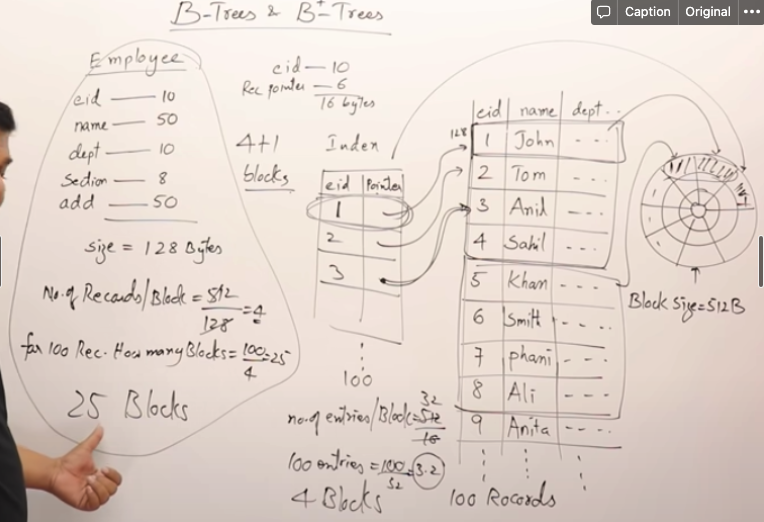 Caption Original
B-Trees & B+-Trees
Employee
eid — 10
name — 50
dept — 10
Section — 8
add — 50
size = 128 Bytes
No. of Records/Block = 512/128 = 4
for 100 Rec. How many Blocks = 100/4 = 25
25 Blocks
eid — 10
Rec pointer — 6
16 bytes
4+1
blocks
Index
eid Pointer
1
2
3
100
no. of entries/Block = 512/16 32
100 entries = 100/32 = 3.2
4 Blocks
eid name dept..
128 1 John ---
2 Tom ---
3 Anil ---
4 Sahil ---
5 Khan ---
6 Smith ----
7 phani ---
8 Ali ---
9 Anita ----
100 Records
Block Size = 512B